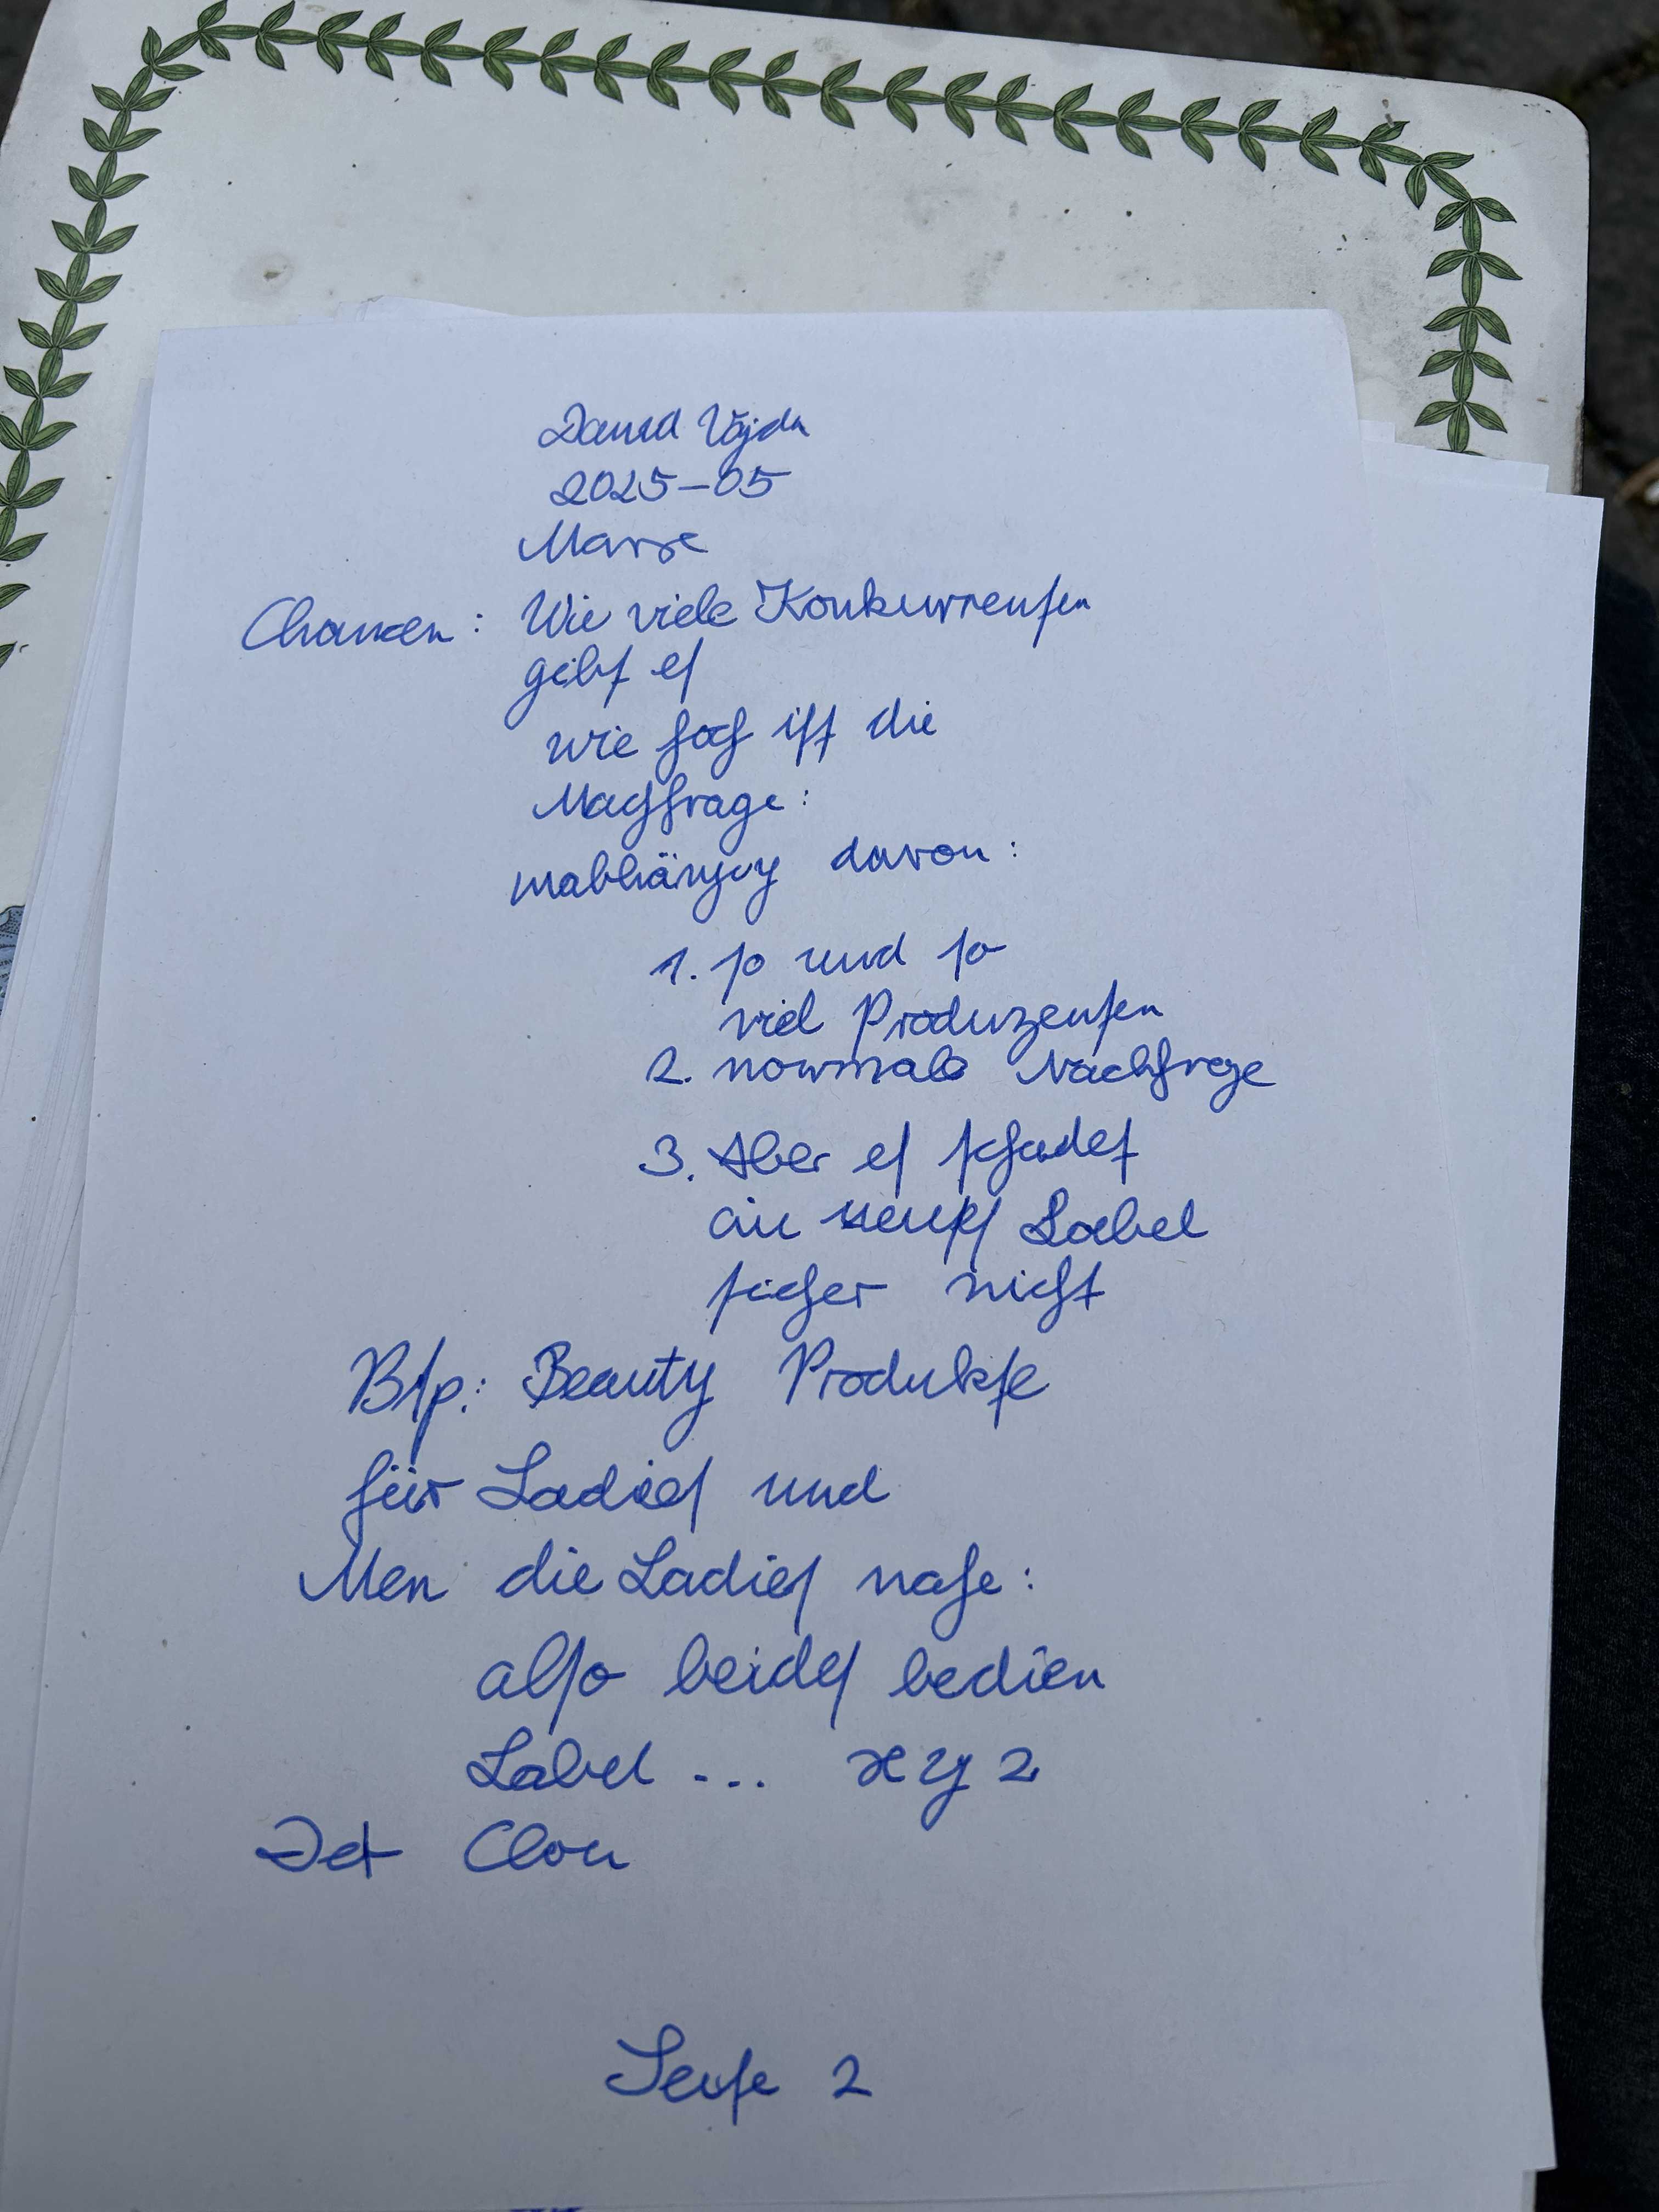 David Vajda
2025-05
Marke
Chancen: Wie viele Konkurrenten
gibt es
wie hoch ist die
Nachfrage:
unabhängig davon:
1. so und so
viel Produzenten
2. normale Nachfrage
3. Aber es schadet
ein neues Label
sicher nicht
Bsp.: Beauty Produkte
für Ladies und
Men die Ladies nahe:
also beides bedien
Label ... x y z
Det Clou
Seite 2